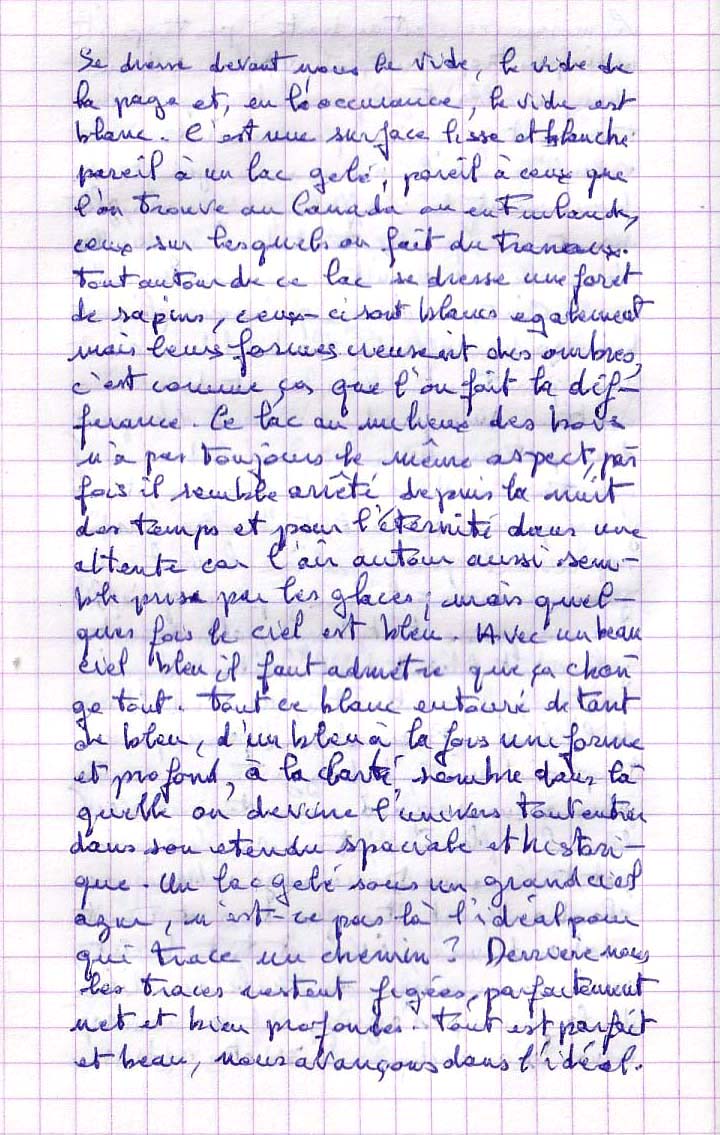 Se dresse devant nous le vide, le vide de
la page et, en l'occurance, le vide est
blanc. C'est une surface lisse et blanche
pareil à un lac gelé, pareil à ceux que
l'on trouve au Canada ou en Finlande,
ceux sur lesquels on fait du traineaux.
Tout autour de ce lac se dresse une foret
de sapins, ceux-ci sont blancs egalement
mais leurs formes creusent des ombres,
c'est comme ça que l'on fait la dif-
ferance. Ce lac au milieux des bois
n'a pas toujours le même aspect, par
fois il semble arrêté depuis la nuit
des temps et pour l'éternité dans une
attente car l'air autour aussi sem-
ble prise par les glaces; mais quel-
ques fois le ciel est bleu. Avec un beau
ciel bleu il faut admetre que ça chan
ge tout. Tout ce blanc entouré de tant
de bleu, d'un bleu à la fois uniforme
et profond, à la clarté sombre dans la
quelle on devine l'univers tout entier
dans son etendu spaciale et histori-
que. Un lac gelé sous un grand ciel
azur, n'est-ce pas là l'idéal pour
qui trace un chemin ? Derriere nous
les traces restent figées, parfaitement
net et bien profondes. Tout est parfait
et beau, nous avançons dans l'idéal.